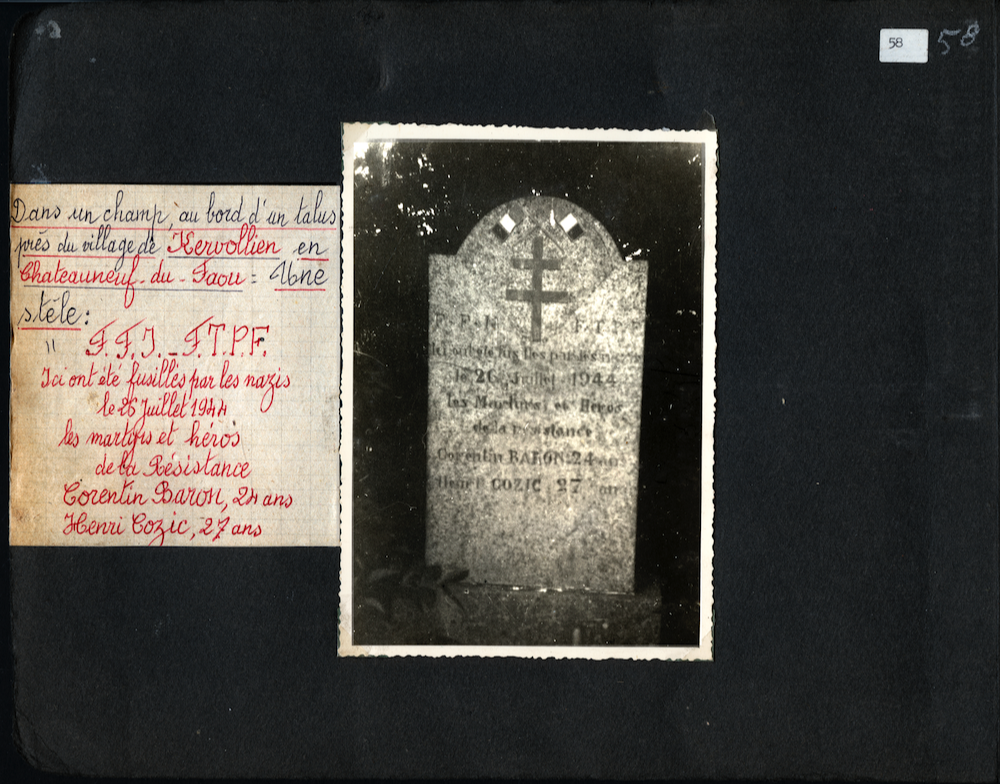 58
58
Dans un champ, au bord d'un talus
près du village de Kervollien en
Chateauneuf-du-Faou = Une
stèle :
" F.F.I. _ F.T.P.F.
Ici ont été fusillés par les nazis
le 26 Juillet 1944
les martyrs et héros
de la Résistance
Corentin Baron, 24 ans
Henri Cozic, 27 ans
F.F.I. F.T.P.F.
Ici ont été fusillés par les nazis
le 26 Juillet 1944
les Martyrs et Héros
de la résistance
Corentin BARON 24 ans
Henri COZIC 27 ans